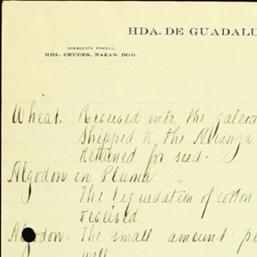 HDA. DE GUADALU
DIRECCIÓN POSTAL,
HDA. CRUCES, NAZAS, DGO
Wheat. Received into the galera
Shipped to the Alianza
Retained for seed.
Algodon en Pluma
The liquidation of cotton
received
Algodon. The small amount pe
well